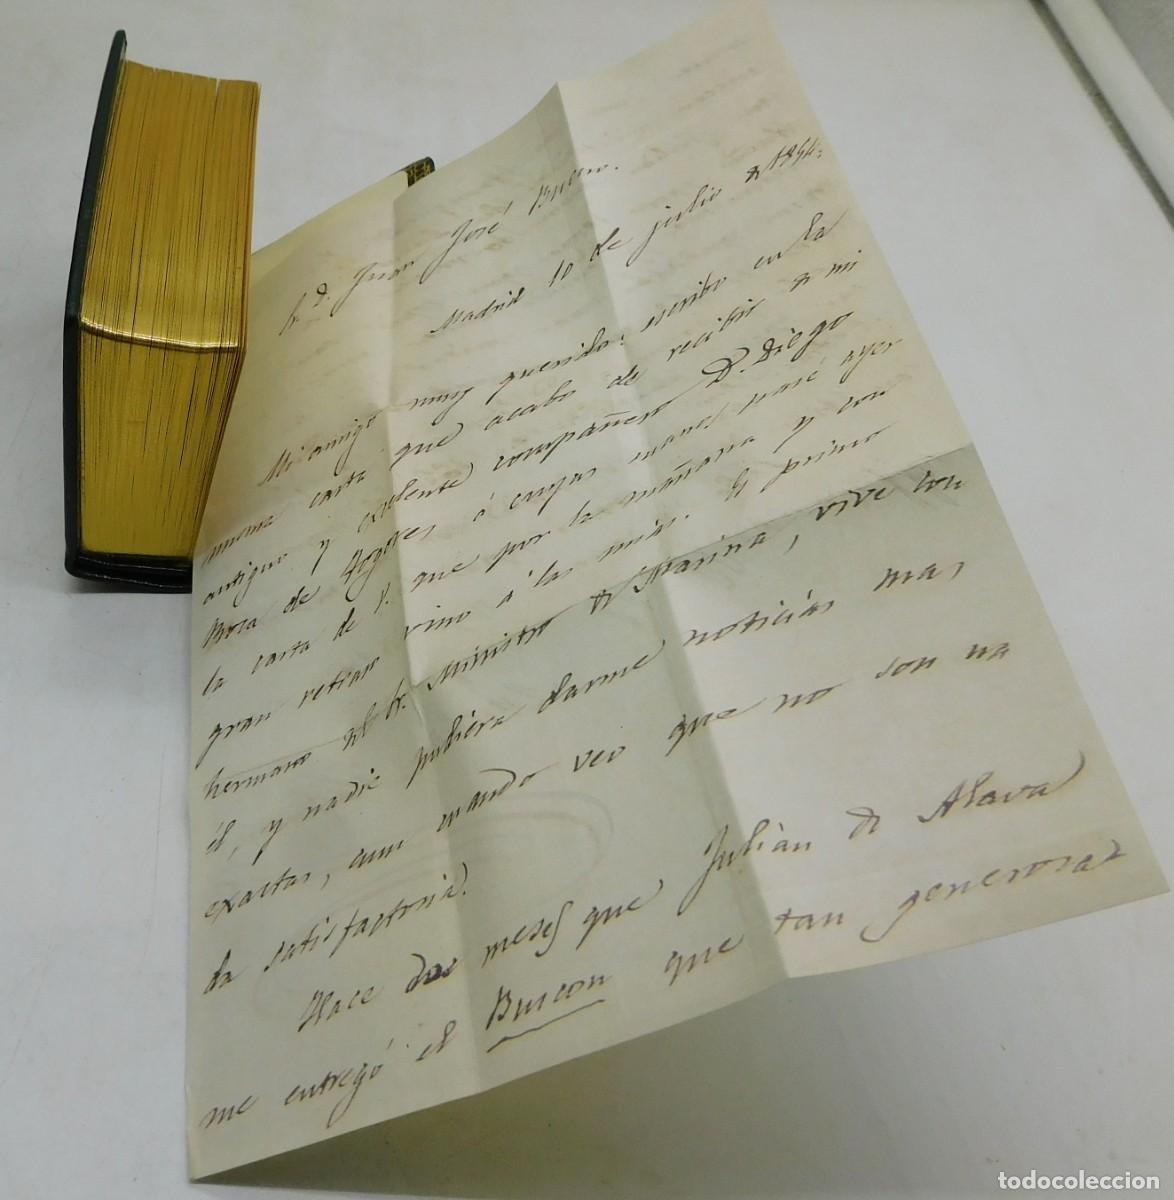 Sr. D. Juan José Bueno.
Madrid 10 de julio de 1854.
Mi amigo muy querido: escribo en la
misma carta que acabo de recibir de mi
antiguo y excelente compañero D. Diego
Roca de Togores, á cuyas manos pasé ayer
la carta de V. que por la mañana y con
gran retraso vino á las mias. Es primo
hermano del Sr. Ministro de Marina, vive con
él, y nadie pudiera darme noticias mas
exactas, aun cuando veo que no son na
da satisfactorias.
Hace dos meses que Julián de Alava
me entregó el Buscon que tan generosa
todocoleccion